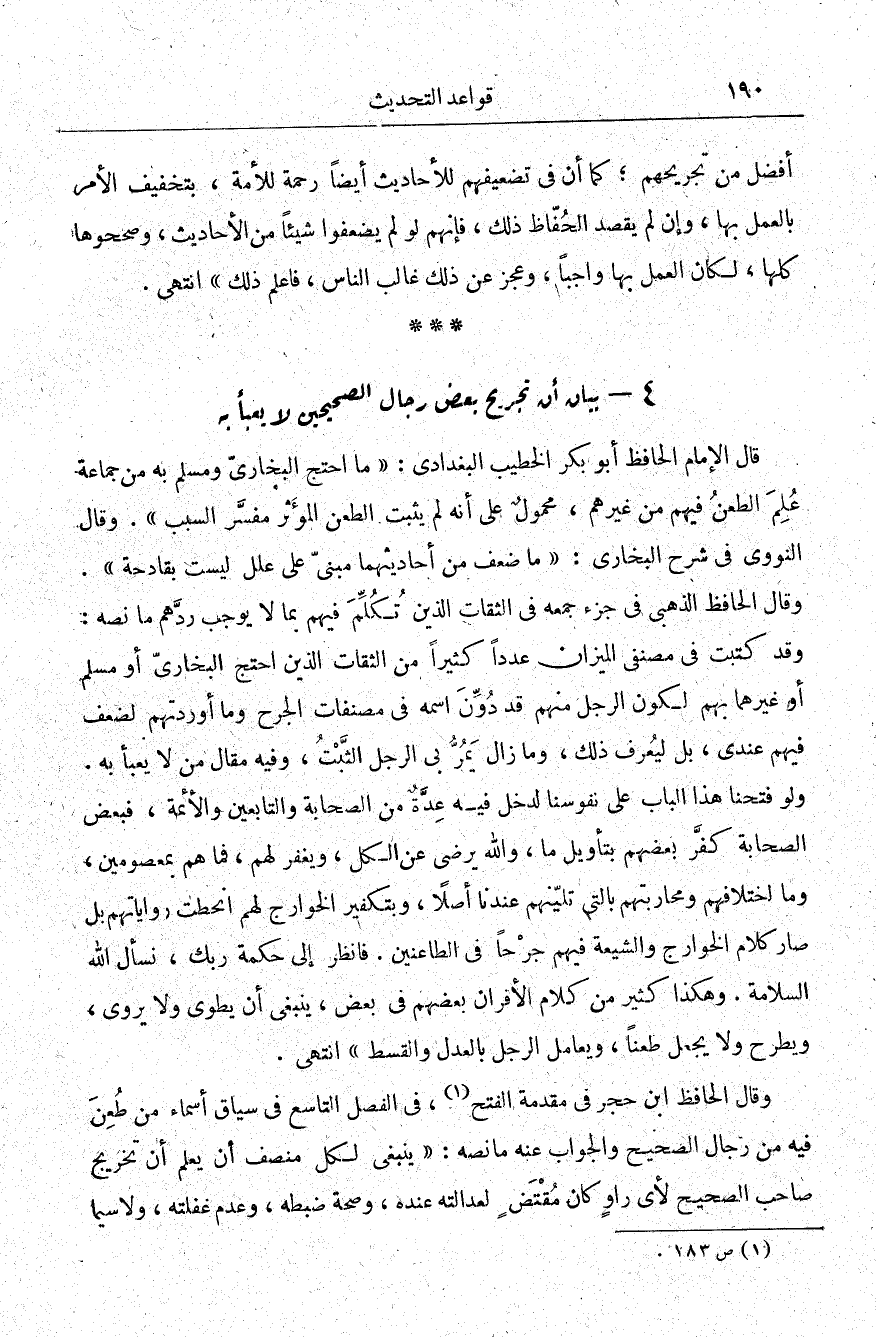 ١٩٠
قواعد التحديث
أفضل من تجريحهم ؛ كما أن فى تضعيفهم للأحاديث أيضاً رحمة للأمة ، بتخفيف الأمر
بالعمل بها ، وإن لم يقصد الحُفّاظ ذلك ، فإنهم لو لم يضعفوا شيئاً من الأحاديث ، وصححوها
كلها ، لكان العمل بها واجباً ، وعجز عن ذلك غالب الناس ، فاعلم ذلك » انتهى .
* * *
٤ — بيان أن تجريح بعض رجال الصحيحين لا يعبأ به
قال الإمام الحافظ أبو بكر الخطيب البغدادى : « ما احتج البخارىّ ومسلم به من جماعة
عُلِمَ الطعنُ فيهم من غيرهم ، محمولٌ على أنه لم يثبت الطعن المؤثر مفسَّر السبب » . وقال
النووى فى شرح البخارى : « ما ضعف من أحاديثهما مبنىّ على علل ليست بقادحة » .
وقال الحافظ الذهبى فى جزء جمعه فى الثقات الذين تُكُلِّمَ فيهم بما لا يوجب ردَّهم ما نصه :
وقد كتبت فى مصنفى الميزان عدداً كثيراً من الثقات الذين احتج البخارىّ أو مسلم
أو غيرهما بهم لكون الرجل منهم قد دُوِّنَ اسمه فى مصنفات الجرح وما أوردتهم لضعف
فيهم عندى ، بل ليُعرف ذلك ، وما زال يَمُرُّ بى الرجل الثَّبْتُ ، وفيه مقال من لا يعبأ به .
ولو فتحنا هذا الباب على نفوسنا لدخل فيه عِدَّةٌ من الصحابة والتابعين والأئمة ، فبعض
الصحابة كفَّر بعضهم بتأويل ما ، والله يرضى عن الكل ، ويغفر لهم ، فما هم بمعصومين ،
وما اختلافهم ومحاربتهم بالتى تليّنهم عندنا أصلًا ، وبتكفير الخوارج لهم انحطت رواياتهم بل
صار كلام الخوارج والشيعة فيهم جرْحاً فى الطاعنين . فانظر إلى حكمة ربك ، نسأل الله
السلامة . وهكذا كثير من كلام الأقران بعضهم فى بعض ، ينبغى أن يطوى ولا يروى ،
ويطرح ولا يجعل طعناً ، ويعامل الرجل بالعدل والقسط » انتهى .
وقال الحافظ ابن حجر فى مقدمة الفتح(١) ، فى الفصل التاسع فى سياق أسماء من طُعِنَ
فيه من رجال الصحيح والجواب عنه ما نصه : « ينبغى لكل منصف أن يعلم أن تخريج
صاحب الصحيح لأى راوٍ كان مُقْتَضٍ لعدالته عنده ، وصحة ضبطه ، وعدم غفلته ، ولاسيما
(١) ص ٢٨٣ .